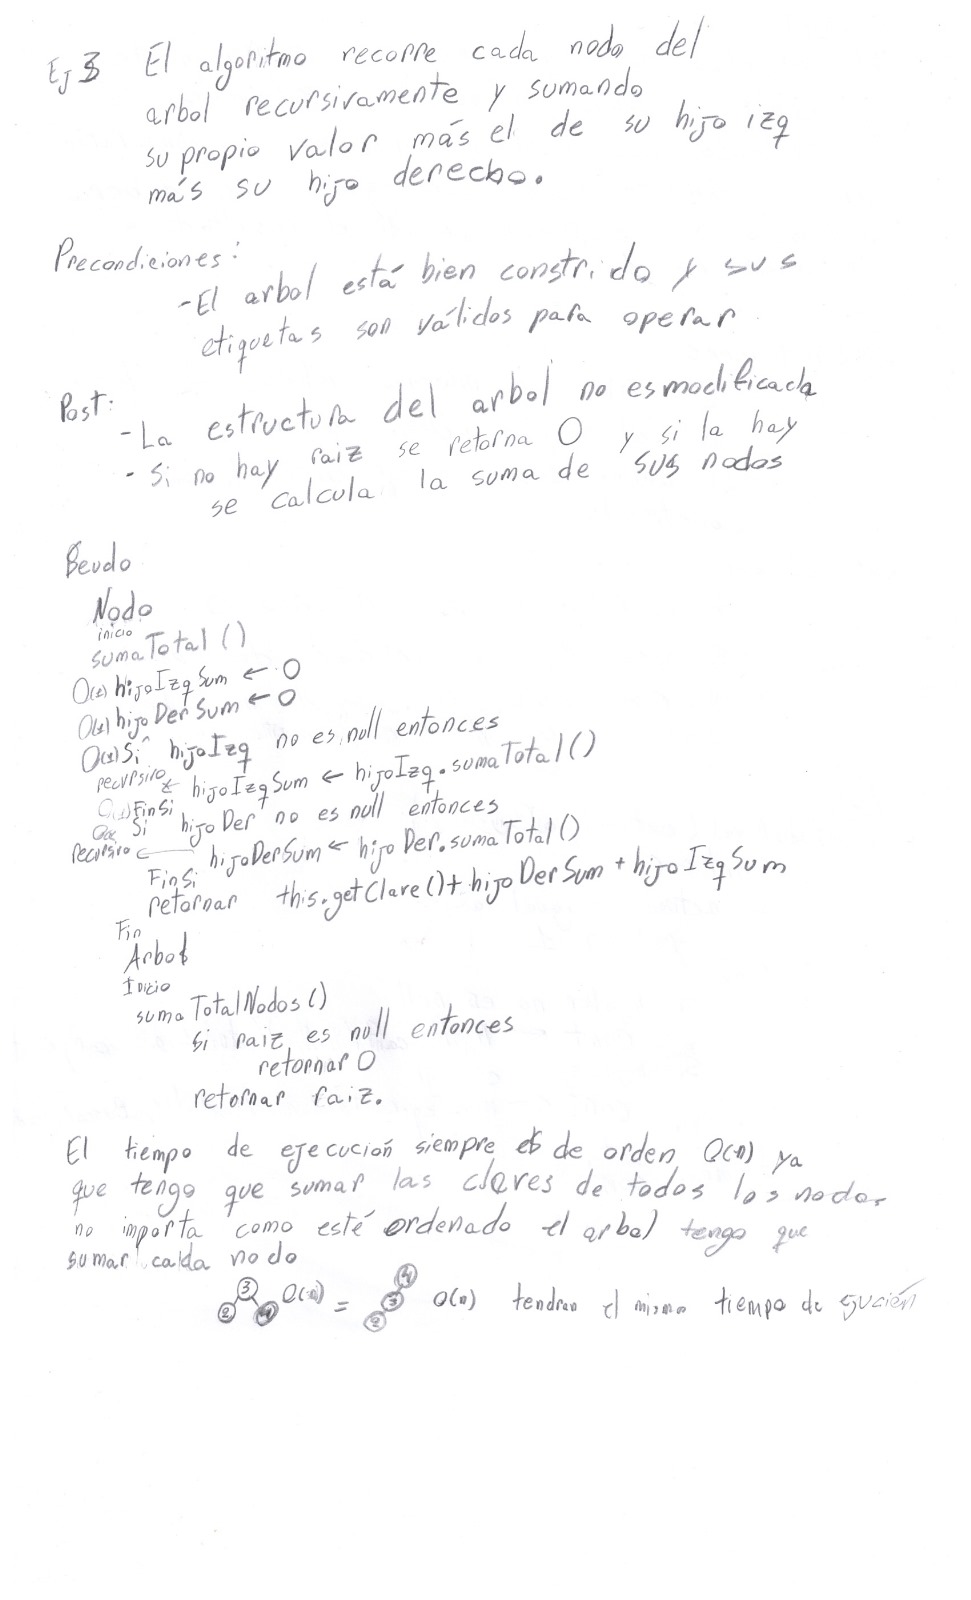 Ej 3 El algoritmo recorre cada nodo del
arbol recursivamente y sumando
su propio valor más el de su hijo izq
más su hijo derecho.
Precondiciones:
-El arbol está bien constrido y sus
etiquetas son válidos para operar
Post:
-La estructura del arbol no es modificada
- Si no hay raiz se retorna 0 y si la hay
se calcula la suma de sus nodos
Seudo
Nodo
inicio
sumaTotal ()
O(1) hijoIzqSum ← 0
O(1) hijoDerSum ← 0
O(1) Si hijoIzq no es null entonces
recursivo ← hijoIzqSum ← hijoIzq.sumaTotal()
O(1) FinSi
Si hijoDer no es null entonces
recursivo ← hijoDerSum ← hijoDer.sumaTotal()
FinSi
retornar this.getClave()+ hijoDerSum + hijoIzqSum
Fin
Arbol
Inicio
sumaTotalNodos()
si raiz es null entonces
retornar 0
retornar raiz.
El tiempo de ejecución siempre es de orden O(n) ya
que tengo que sumar las claves de todos los nodos,
no importa como esté ordenado el arbol tengo que
sumar cada nodo
3 2 4 O(n) = 4 3 2 O(n) tendran el mismo tiempo de ejución